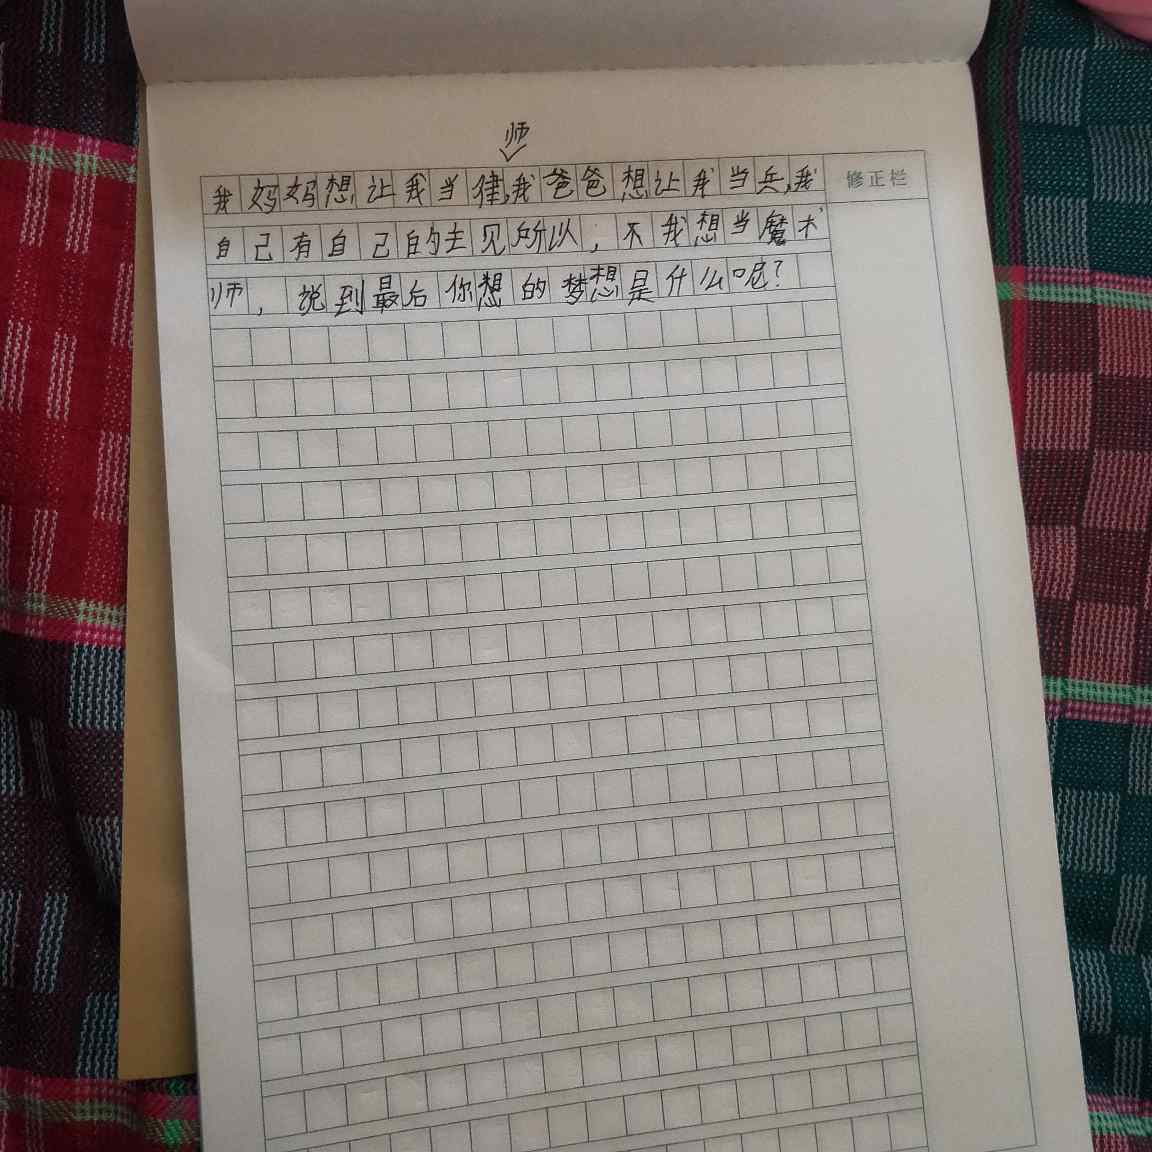 师
我妈妈想让我当律,我爸爸想让我当兵,我 修正栏
自己有自己的主见所以,不我想当魔术
师,说到最后你想的梦想是什么呢?